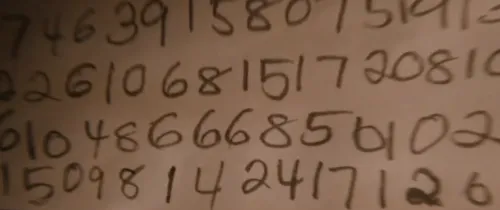 746391580751912
2261068151720810
6104866685610 2
1509814 2417126